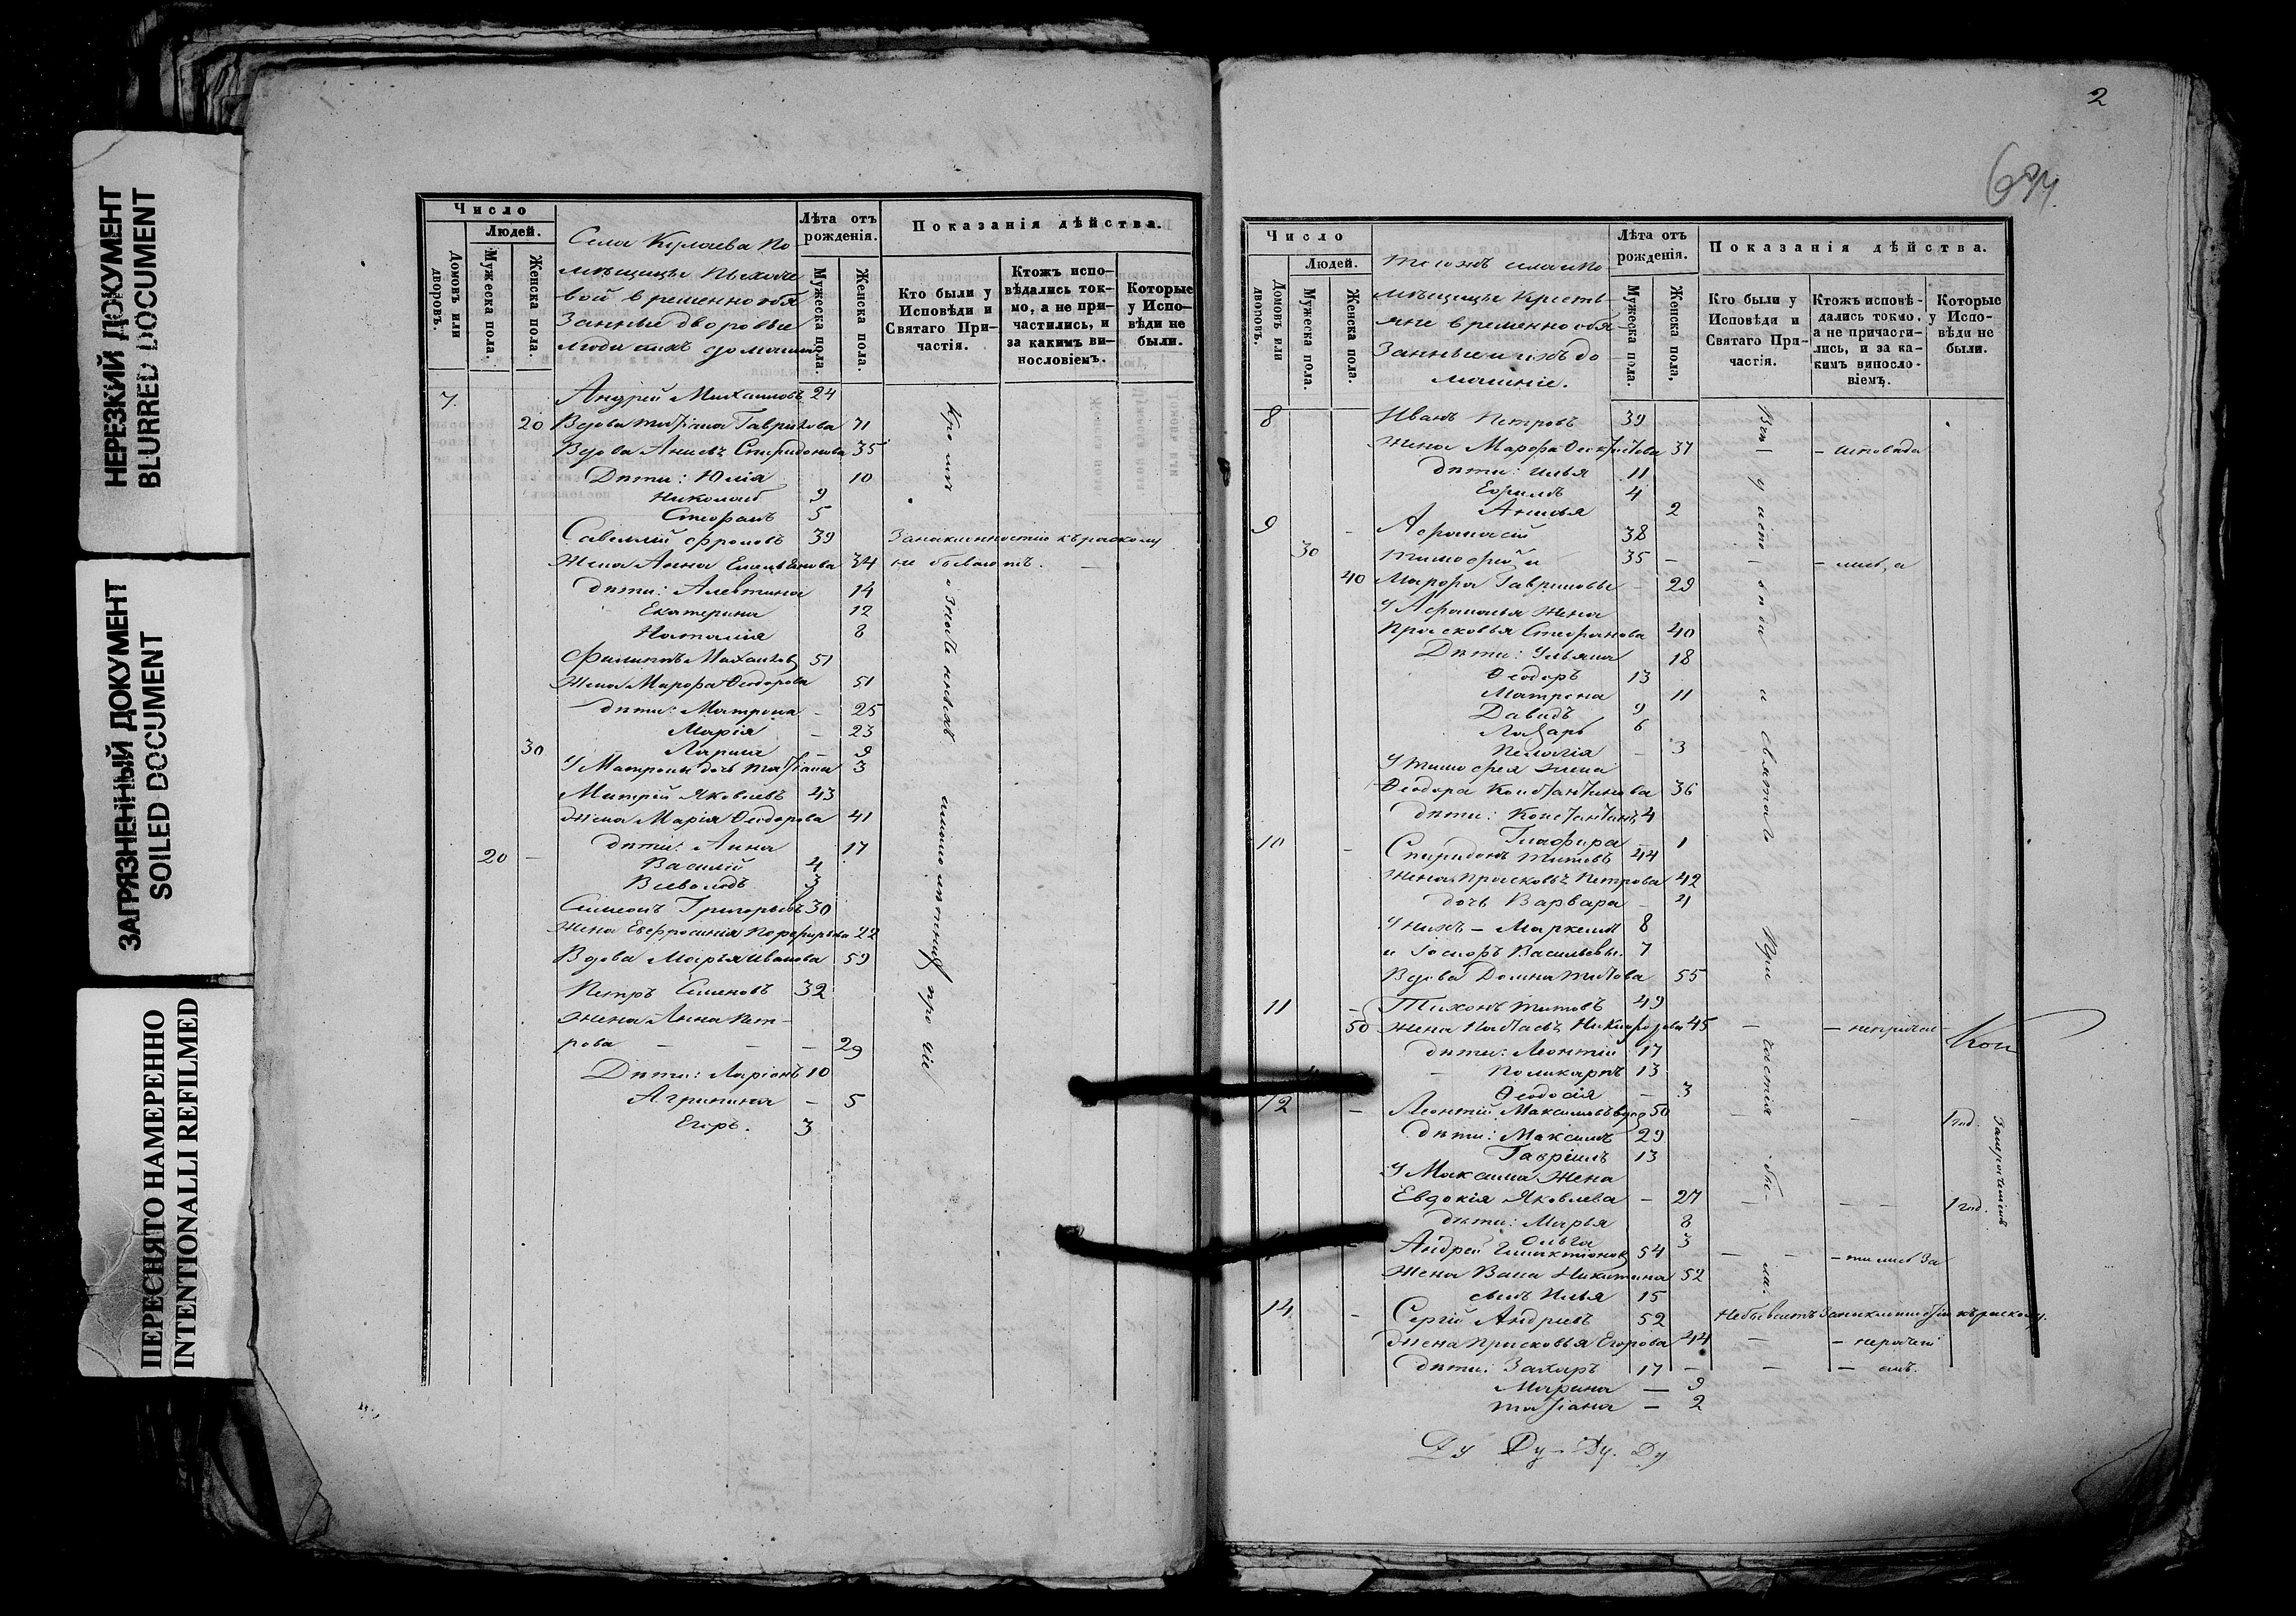 НЕРЕЗКИЙ ДОКУМЕНТ
BLURRED DOCUMENT
ЗАГРЯЗНЕННЫЙ ДОКУМЕНТ
SOILED DOCUMENT
ПЕРЕСНЯТО НАМЕРЕННО
INTENTIONALLI REFILMED
Число
Людей.
Домовъ или дворовъ.
Мужеска пола.
Женска пола.
Села Кулаева По
мѣщицы
вой временно обя
занные дворовые
люди ихъ домашн
Лѣта отъ рожденія.
Мужеска пола.
Женска пола.
Показанія дѣйства.
Кто были у Исповѣди и Святаго Причастія.
Ктожъ исповѣдались токмо, а не причастились, и за какимъ винословіемъ.
Которые у Исповѣди не были.
7. Андрей Михаиловъ 24
20 Вдова Татіана Гаврилова 71
Вдова Анисья Спиридонова 35
Дѣти: Юлія 10
Николай 9
Стефанъ 5
Савелій Фроловъ 39 За наклонностію къ расколу
Жена Анна Емельянова 34 не бываютъ.
дѣти: Алевтина 14
Екатерина 12
Наталія 8
Филиппъ Михаиловъ 51
Жена Марфа Ѳеодорова 51
дѣти: Матрона - 25
Марія - 23
30 Лариса - 9
У Матроны дочь Татіана 3
Митрій Яковлевъ 43
Жена Марія Ѳеодорова 41
дѣти: Анна 17
20 - Василій 4
Всеволодъ 3
Симеонъ Григорьевъ 30
Жена Евфросинія Порфирьева 22
Вдова Марья Иванова 59
Петръ Семеновъ 32
Жена Анна Пет-
рова - - - 29
Дѣти: Ларіонъ 10
Агрипина - 5
Егоръ. 3
Кромѣ означенныхъ прочіе
2
Число
Людей.
Домовъ или дворовъ.
Мужеска пола.
Женска пола.
Тогожъ села По
мѣщицы Кресть
яне временно обя-
занные и ихъ до
машніе.
Лѣта отъ рожденія.
Мужеска пола.
Женска пола,
Показанія дѣйства.
Кто были у Исповѣди и Святаго Причастія.
Ктожъ исповѣдались токмо, а не причастились, и за какимъ винословіемъ.
Которые у Исповѣди не были.
8 Иванъ Петровъ 39
Жена Марфа 37
дѣти: Илья 11
Ефимъ 4
Анисья 2
9 - Афанасій 38
30 Тимофей и 35 -
40 Марфа Гавриловы - 29
У Афанасья Жена
Прасковья Стефанова 40
Дѣти: Ульяна 18
Ѳеодоръ 13
Матрона 11
Давидъ 9
Лазарь 6
Пелагія - 3
У Тимофея жена
Ѳеодора Константинова 36
дѣти: Константинъ 4
Глафира - 1
10 - Спиридонъ Титовъ 44
Жена Прасковья Петрова 42
дочь Варвара - 4
У нихъ - Маркелъ 8
и Іосифъ Васильевы. 7
Вдова Домна Титова 55
11 - Тихонъ Титовъ 49
50 Жена 45
дѣти: Леонтій 17
Поликарпъ 13
Ѳеодосія - 3
12 - Леонтій Максимовъ вдов 50
дѣти: Максимъ 29
Гавріилъ 13
У Максима Жена
Евдокія Яковлева - 27
дѣти: Марья 8
Ольга 3
Андрей 54
Жена Васса Никитина 52
сынъ Илья 15
14 - Сергій Андреевъ 52 Не бываетъ
Жена Прасковья Егорова 44
дѣти: Захаръ 17
Марина - 9
Татіана - 2
Всѣ у исповѣди и святаго Причастія были.
1 год.
1 год.
Ду Ду - Ду. Ду